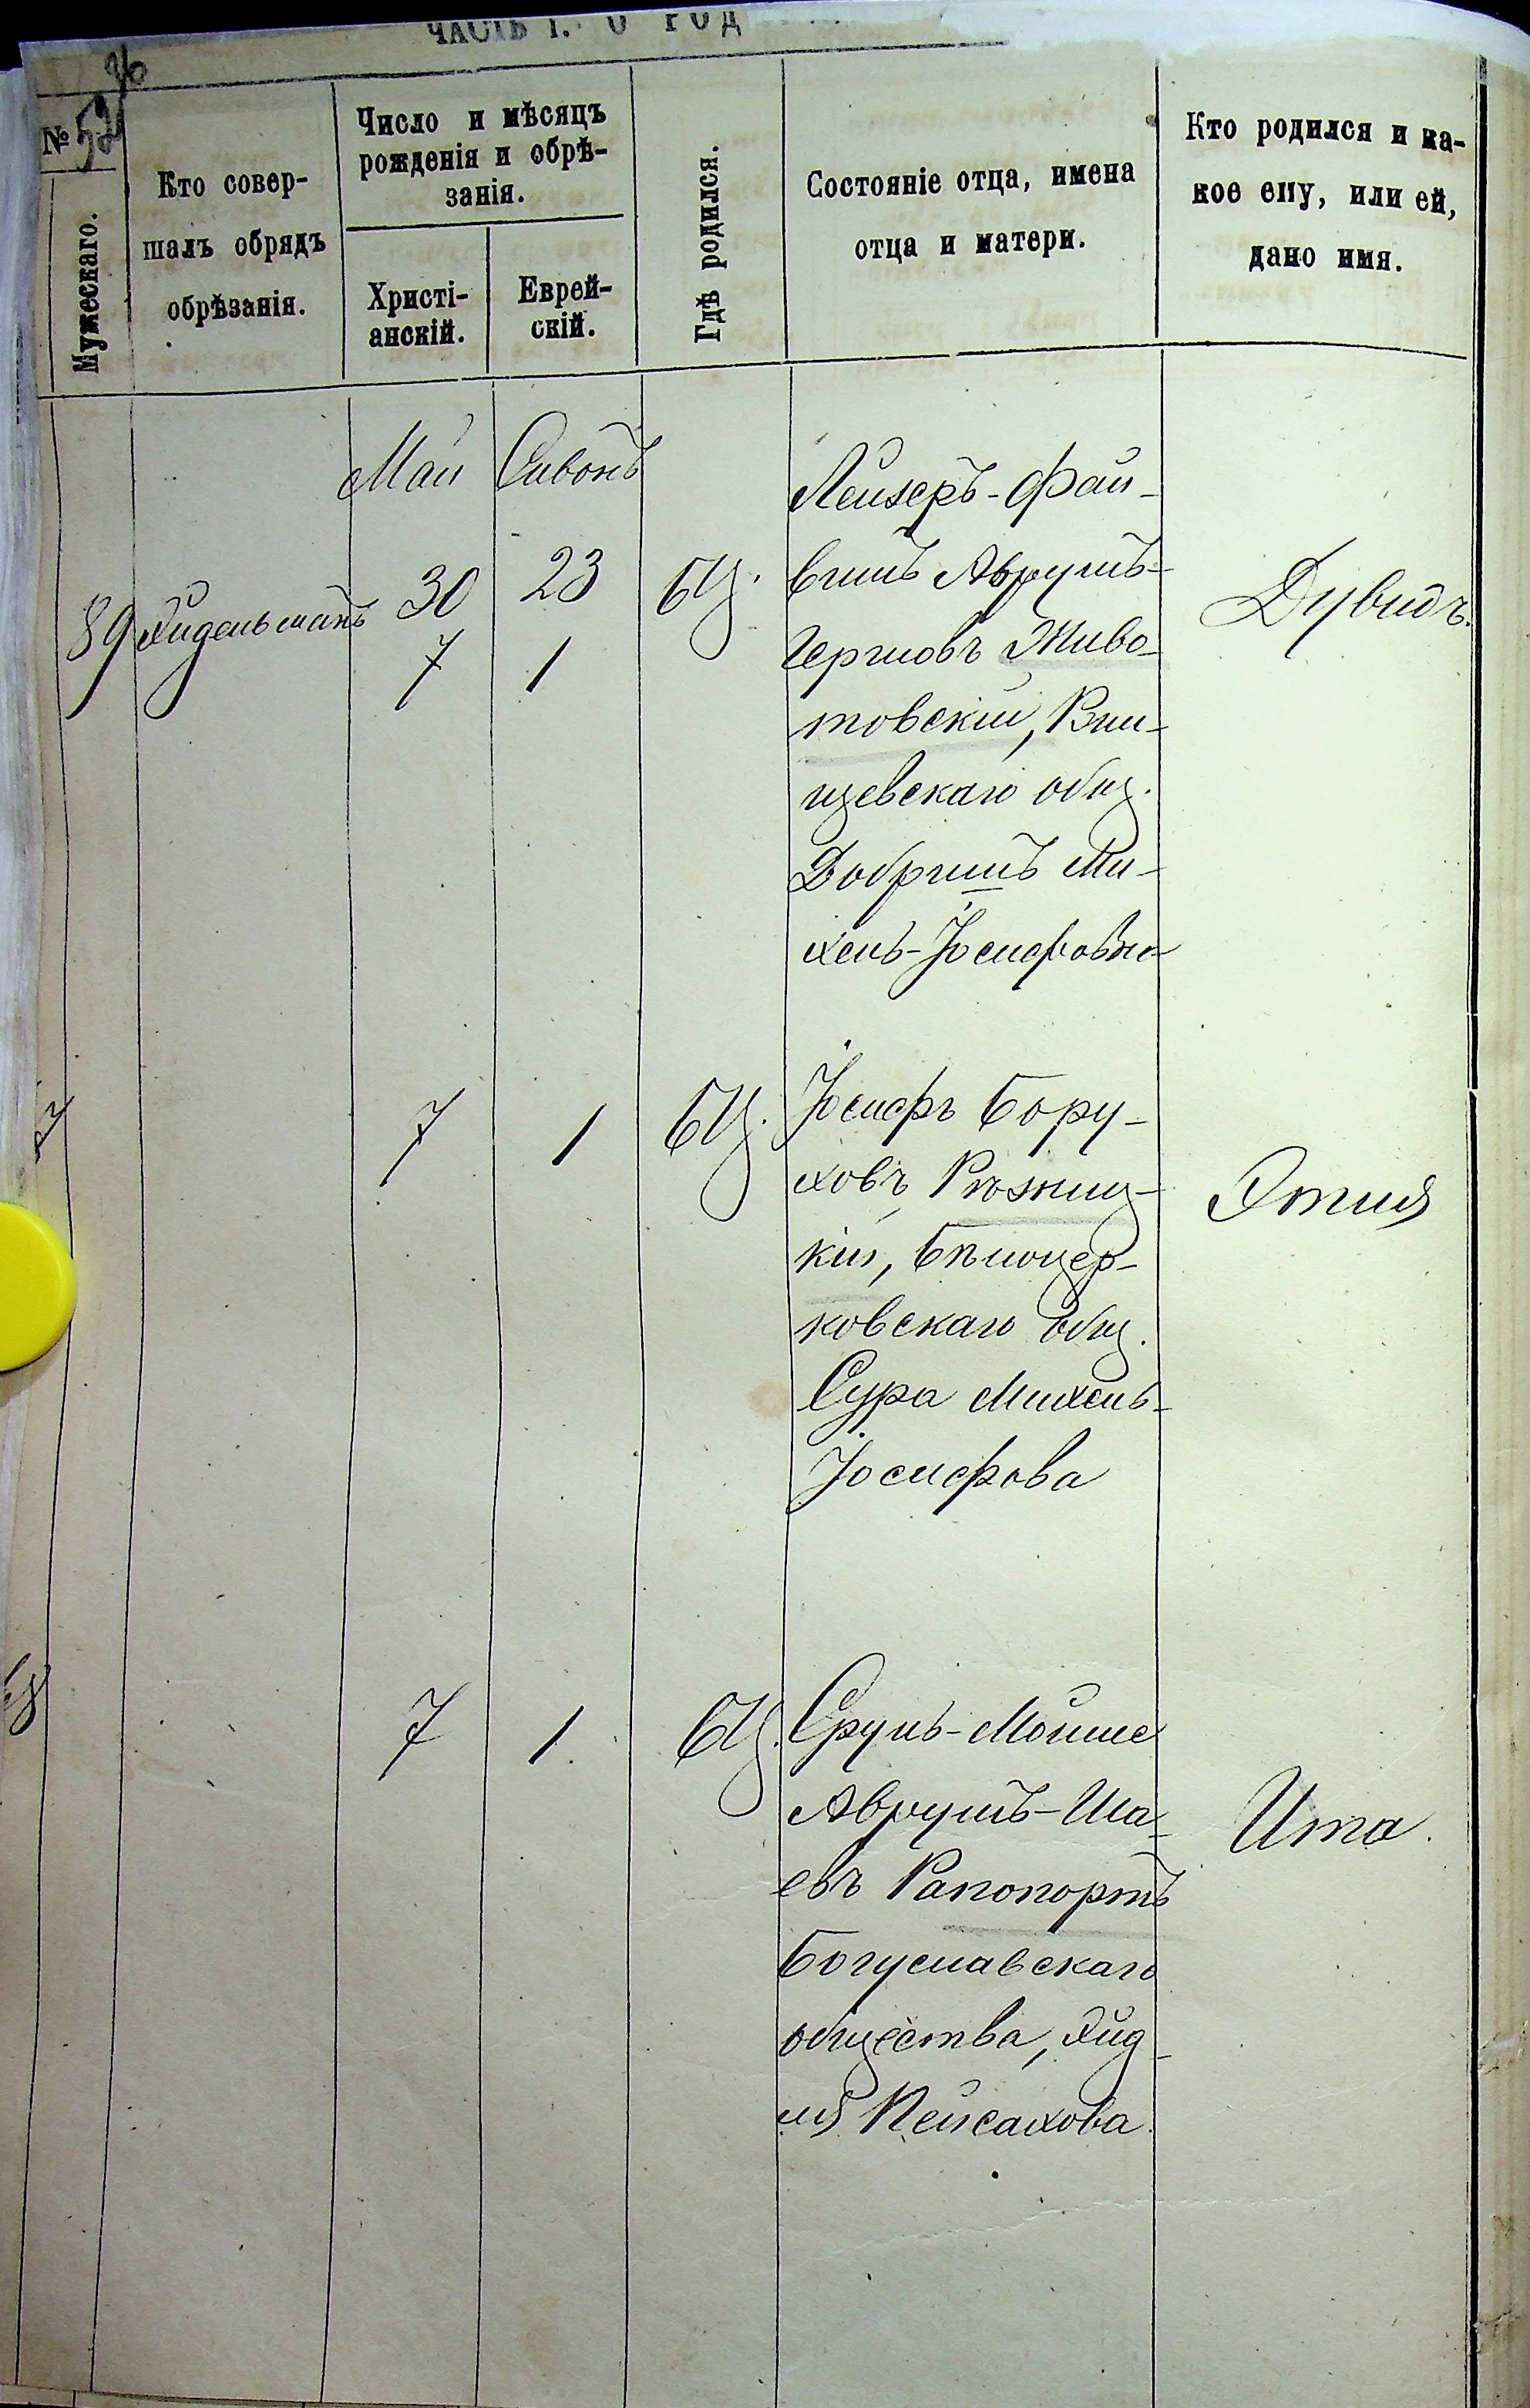 ЧАСТЬ I. О РОД
№
Мужескаго.
Кто совер-
шалъ обрядъ
обрѣзанія.
Число и мѣсяцъ
рожденія и обрѣ-
занія.
Христі-
анскій.
Еврей-
скій.
Гдѣ родился.
Состояніе отца, имена
отца и матери.
Кто родился и ка-
кое ему, или ей,
дано имя.
Май Сивонъ
89 Хидельманъ 30 7 23 1 БЦ.
Лейзеръ-Фай-
вишъ Аврумъ-
Гершовъ Живо-
товскій, Вин-
цевскаго общ.
Добришъ Ми-
хель-Іосифовна
Дувидъ.
7 1 БЦ.
Іосифъ Бору-
ховъ Рожиц-
кій, Бѣлоцер-
ковскаго общ.
Сура Михель-
Іосифова
Этия
7 1. БЦ.
Сруль-Мойше
Аврумъ-Ша-
евъ Рапопортъ
Богуславскаго
общества, Хид-
ля Пейсахова.
Ита.